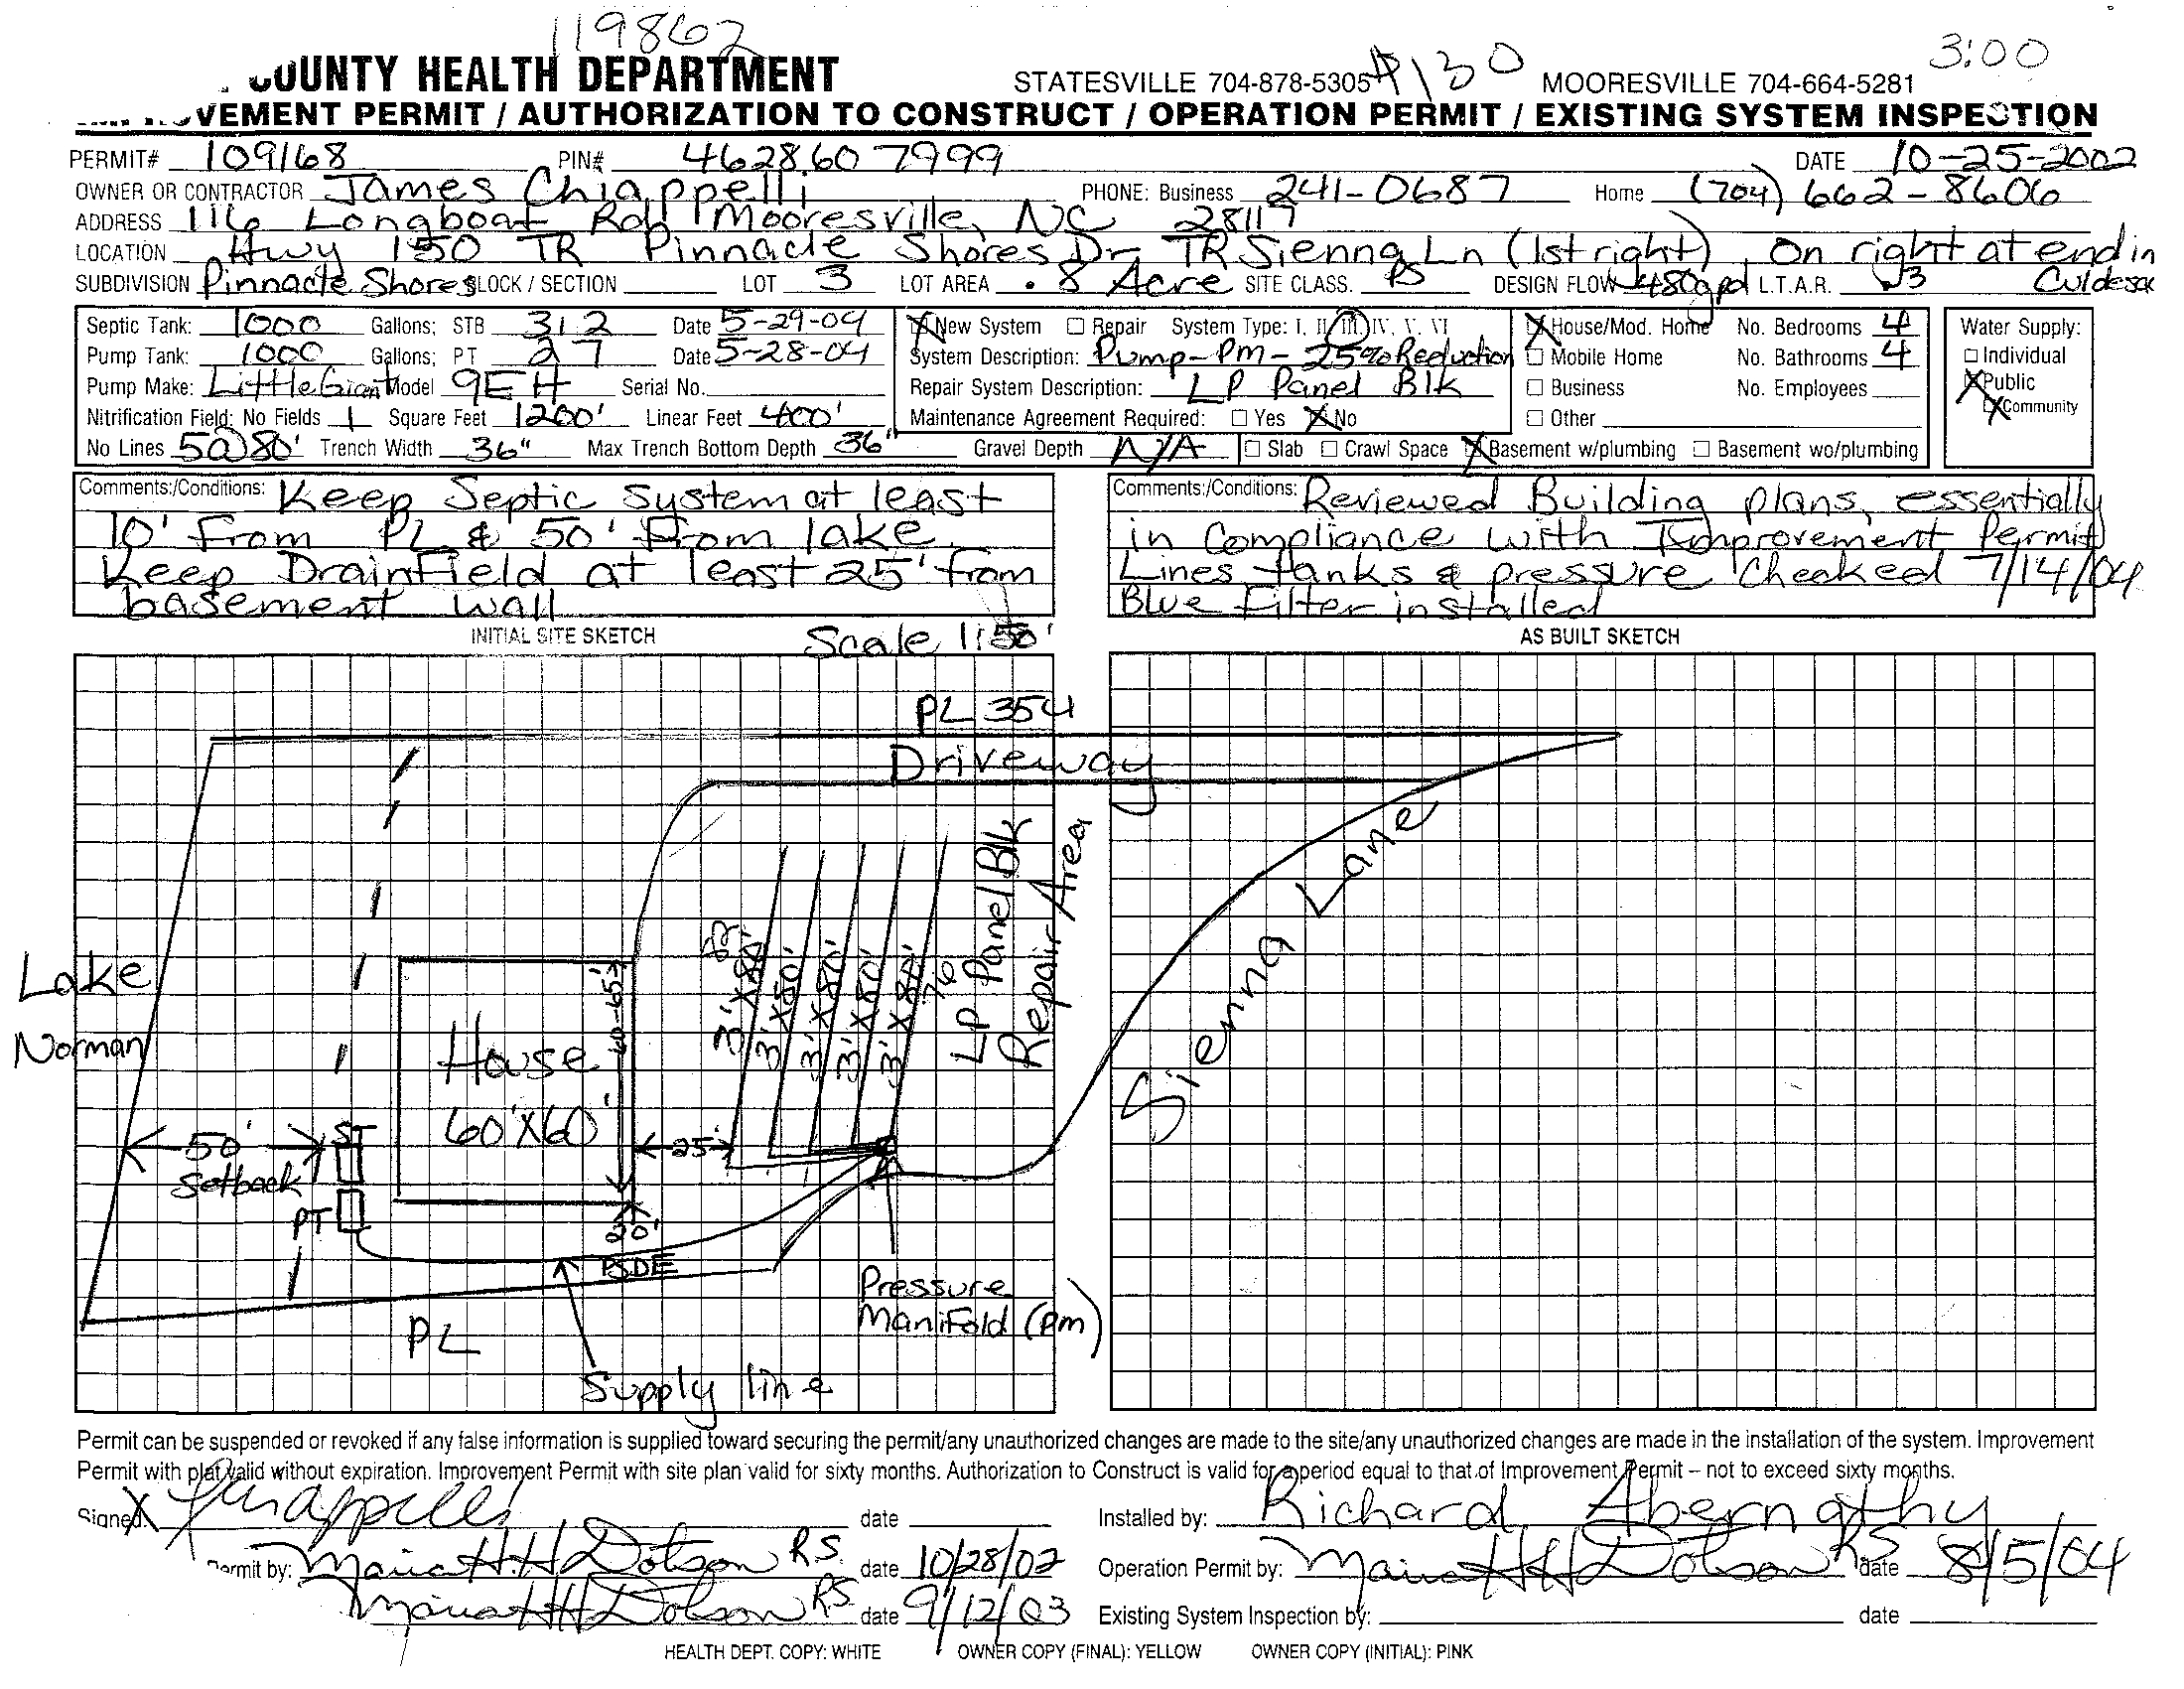 119862
COUNTY HEALTH DEPARTMENT STATESVILLE 704-878-5305 #130 MOORESVILLE 704-664-5281 3:00
VEMENT PERMIT / AUTHORIZATION TO CONSTRUCT / OPERATION PERMIT / EXISTING SYSTEM INSPECTION
PERMIT# 109168 PIN# 4628.60 7999 DATE 10-25-2002
OWNER OR CONTRACTOR James Chiappelli PHONE: Business 241-0687 Home (704) 662-8606
ADDRESS 116 Longboat Rd Mooresville, NC 28117
LOCATION Hwy 150 TR Pinnacle Shores Dr TR Sienna Ln (1st right), On right at end in
SUBDIVISION Pinnacle Shores BLOCK / SECTION LOT 3 LOT AREA .8 Acre SITE CLASS. PS DESIGN FLOW 480gpd L.T.A.R. .3 Culdesac
Septic Tank: 1000 Gallons; STB 312 Date 5-29-04
Pump Tank: 1000 Gallons; PT 27 Date 5-28-04
Pump Make: Little Giant Model 9EH Serial No.
Nitrification Field: No Fields 1 Square Feet 1200' Linear Feet 400'
No Lines 5@80' Trench Width 36" Max Trench Bottom Depth 36" Gravel Depth N/A
X New System ☐ Repair System Type: I, II, III, IV, V, VI
System Description: Pump-PM-25% Reduction
Repair System Description: LP Panel Blk
Maintenance Agreement Required: ☐ Yes X No
X House/Mod. Home No. Bedrooms 4
☐ Mobile Home No. Bathrooms 4
☐ Business No. Employees
☐ Other
☐ Slab ☐ Crawl Space X Basement w/plumbing ☐ Basement wo/plumbing
Water Supply:
☐ Individual
X Public
X Community
Comments:/Conditions: Keep Septic System at least
10' From PL & 50' From lake.
Keep Drainfield at least 25' from
basement wall
Comments:/Conditions: Reviewed Building plans, essentially
in Compliance with Improvement Permit
Lines, tanks & pressure Checked 7/14/04
Blue Filter installed
INITIAL SITE SKETCH Scale 1:50'
AS BUILT SKETCH
PL 354
Driveway
LP Panel Blk
Repair Area
Sienna Lane
Lake
Norman
House
60'X60'
60-65'
82
3'X80'
3'X80'
3'X80'
3'X80'
3'X80'
76
50'
Setback
ST
PT
25'
20'
PSDE
Pressure
Manifold (PM)
PL
Supply line
Permit can be suspended or revoked if any false information is supplied toward securing the permit/any unauthorized changes are made to the site/any unauthorized changes are made in the installation of the system. Improvement
Permit with plat valid without expiration. Improvement Permit with site plan valid for sixty months. Authorization to Construct is valid for a period equal to that of Improvement Permit – not to exceed sixty months.
Signed: X Chiappelli date
Installed by: Richard Abernathy
Permit by: Maria H.H. Dotson RS date 10/28/02
Operation Permit by: Maria H H Dotson RS date 8/5/04
Maria H H Dotson RS date 9/12/03
Existing System Inspection by: date
HEALTH DEPT. COPY: WHITE OWNER COPY (FINAL): YELLOW OWNER COPY (INITIAL): PINK